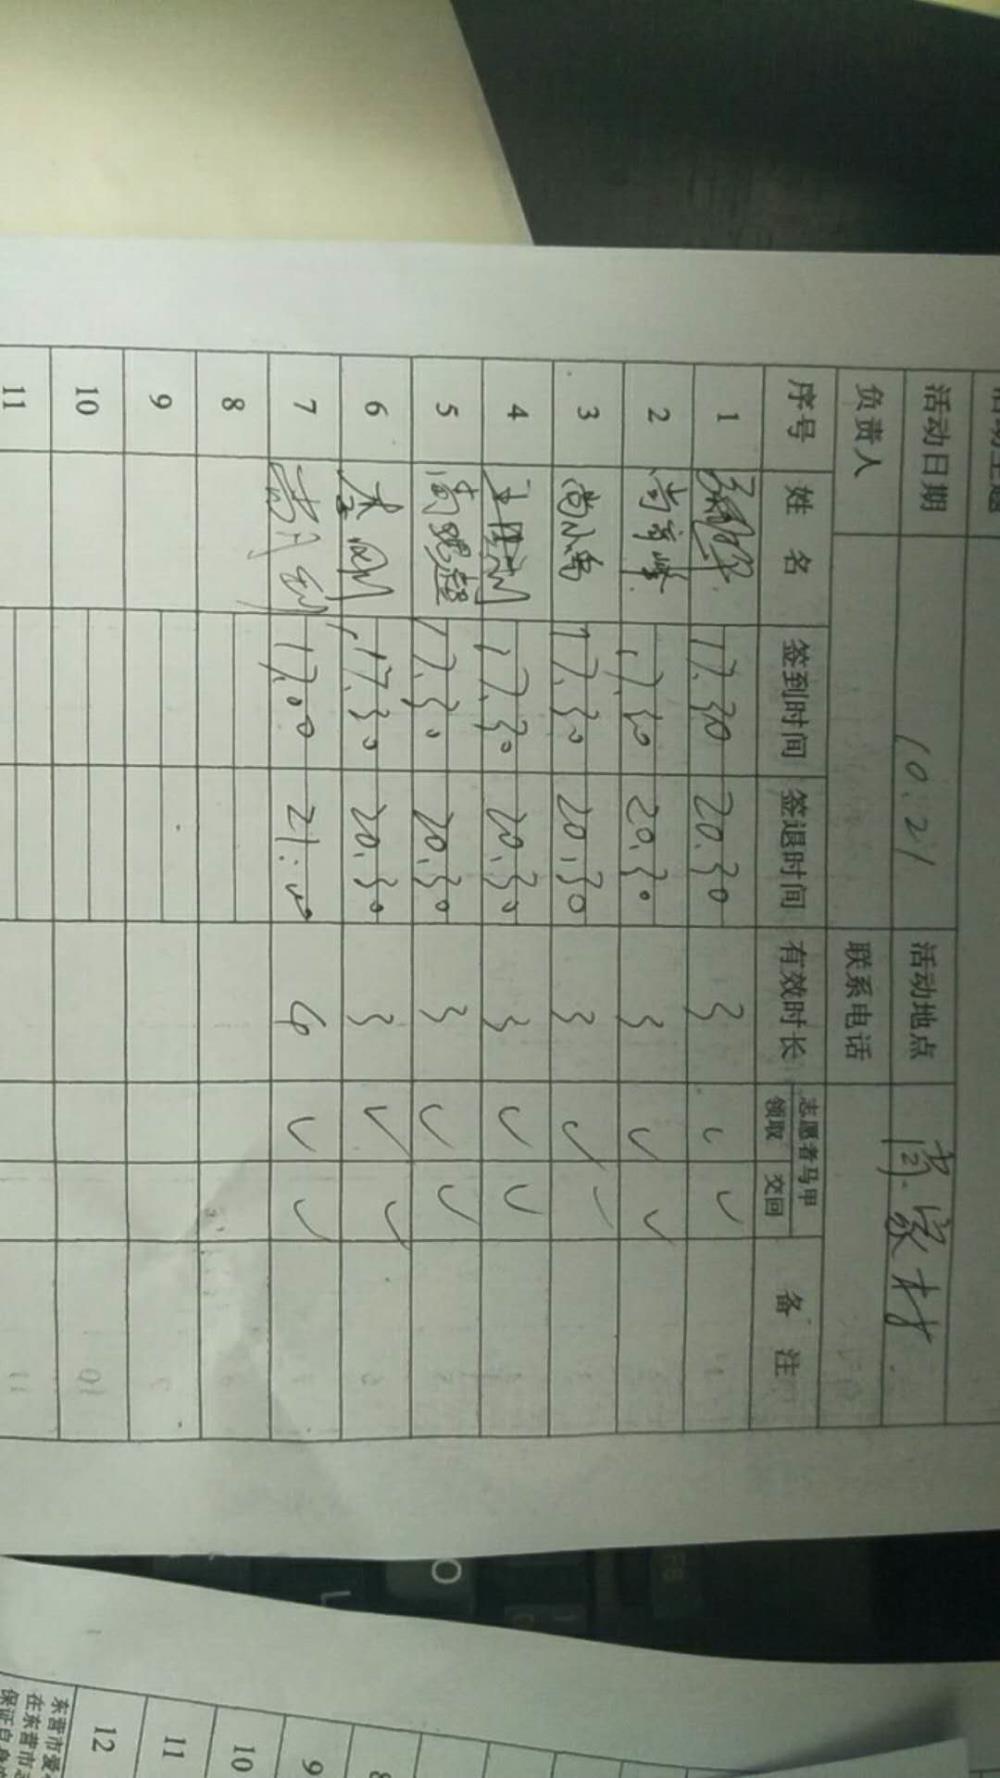 活动主题
活动日期 10.21 活动地点 尚家村
负责人 联系电话
序号 姓名 签到时间 签退时间 有效时长 志愿者马甲 备注
领取 交回
1 17.30 20.30 3 ✓ ✓
2 17.30 20.30 3 ✓ ✓
3 尚小勇 17.30 20.30 3 ✓ ✓
4 17.30 20.30 3 ✓ ✓
5 17.30 20.30 3 ✓ ✓
6 李刚 17.30 20.30 3 ✓ ✓
7 17.00 21:00 4 ✓ ✓
8
9
10
11
O
L
F8
8
9
10
11
12
东营市爱
在东营市
保证自身